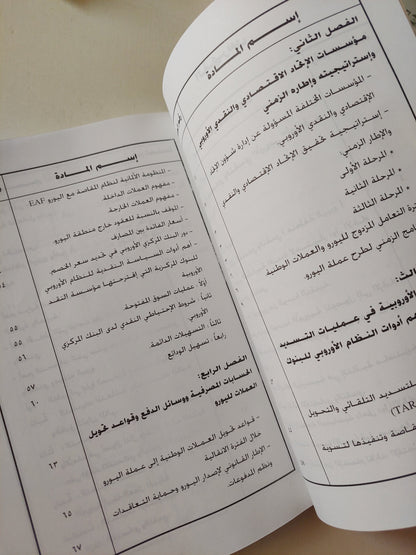 إسـم المـادة
الفصل الثاني:
مؤسسات الإتحاد الاقتصادي والنقدي الأوروبي
وإستراتيجيته وإطاره الزمني
- المؤسسات المختلفة المسؤولة عن إدارة شؤون الإتحاد
الإقتصادي والنقدي الأوروبي.
- إستراتيجية تحقيق الإتحاد الإقتصادي والنقدي
والإطار الزمني.
• المرحلة الأولى
• المرحلة الثانية
• المرحلة الثالثة
التعامل المزدوج لليورو والعملات الوطنية
البرنامج الزمني لطرح عملة اليورو.
الأوروبية في عمليات التسديد
أدوات النظام الأوروبي للبنوك
التسديد التلقائي والتحويل
(TAR
وتنفيذها لتسوية
إسـم المـادة
- المنظومة الألمانية لنظام المقاصة مع اليورو EAF
- مفهوم العملات الداخلة.
- مفهوم العملات الخارجة.
- الموقف بالنسبة للعقود خارج منطقة اليورو
- أسعار الفائدة بين المصارف
- دور البنك المركزي الأوروبي في تحديد سعر الخصم
- أهم أدوات السياسة النقدية للنظام الأوروبي
للبنوك المركزية التي إقترحتها مؤسسة النقد
الأوروبية
أولاً: عمليات السوق المفتوحة
ثانياً: شروط الإحتياطي النقدي لدى البنك المركزي ٥٥
الأوروبي ٥٥
ثالثاً: التسهيلات الدائمة ٥٦
رابعاً: تسهيل الودائع
٥٧
الفصل الرابع: ٦٠
الحسابات المصرفية ووسائل الدفع وقواعد تحويل
العملات لليورو
- قواعد تحويل العملات الوطنية إلى عملة اليورو ٦٣
خلال الفترة الانتقالية
- الإطار القانوني لإصدار اليورو وحماية التعاقدات ٦٥
ونظم المدفوعات
٦٧